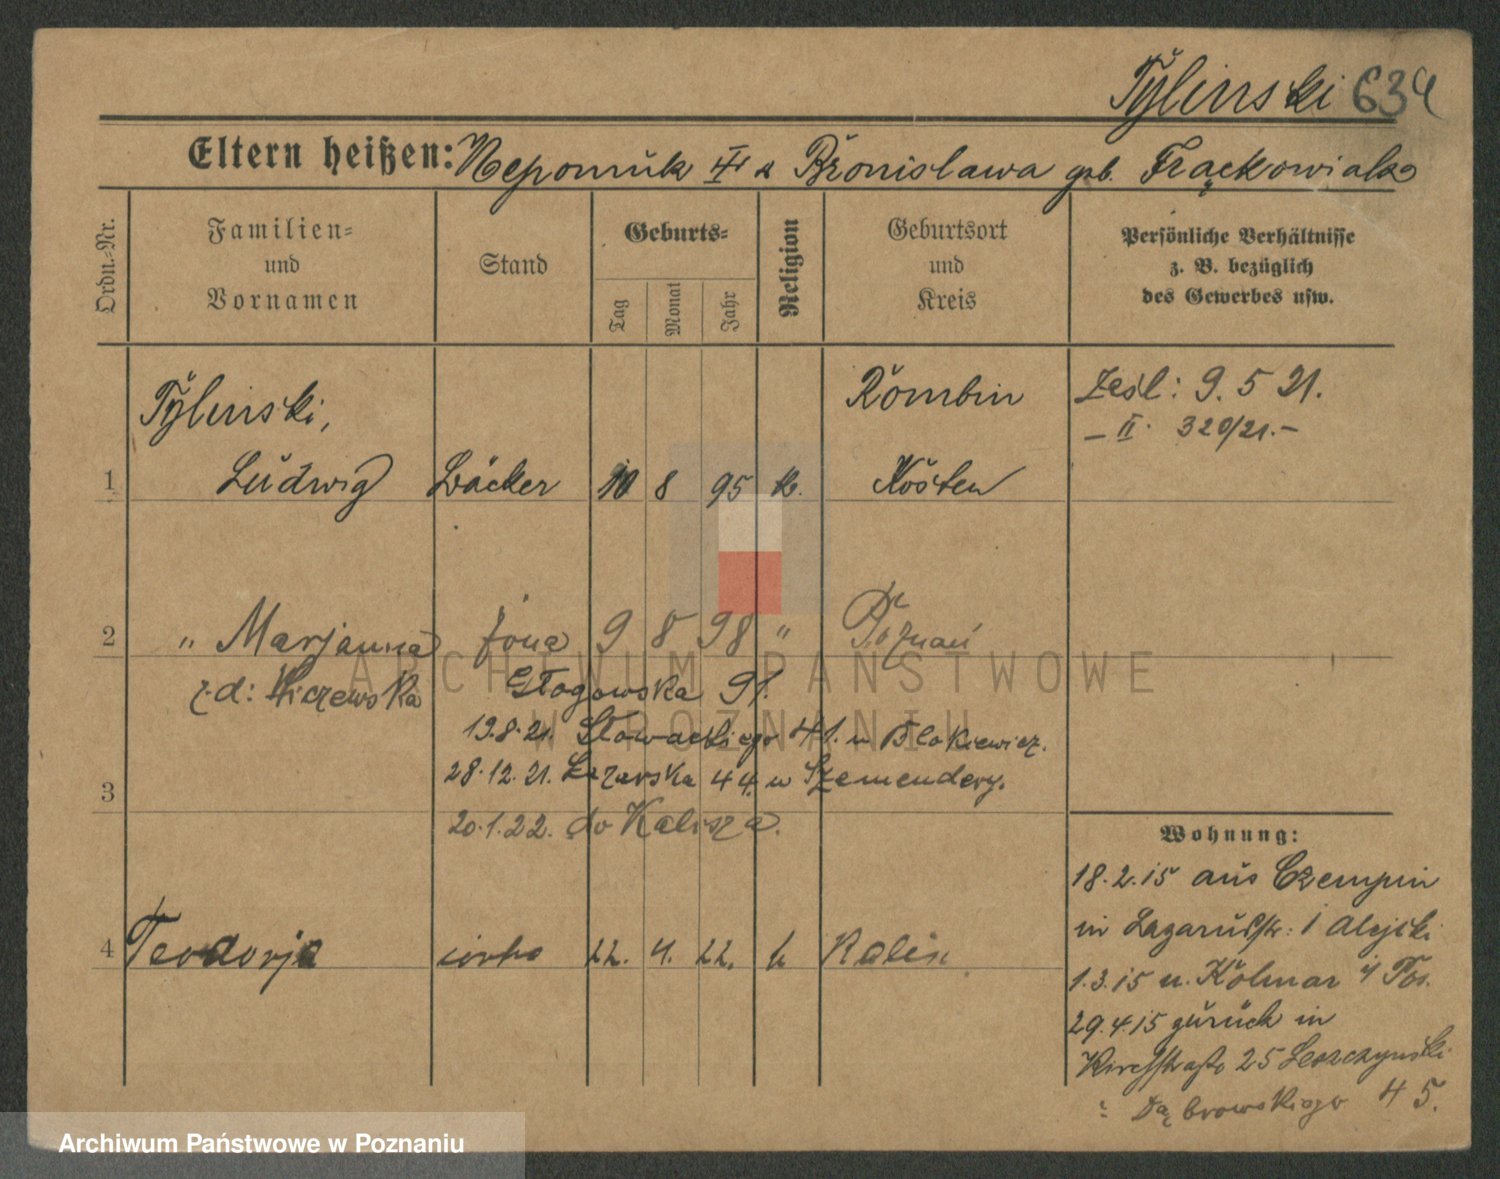 Tylinski 634
Eltern heißen: Nepomuk & Bronislawa geb. Frąckowiak
Ordn.-Nr.
Familien-
und
Vornamen
Stand
Geburts-
Tag
Monat
Jahr
Religion
Geburtsort
und
Kreis
Persönliche Verhältnisse
z. B. bezüglich
des Gewerbes usw.
Tylinski,
Rombin
Zesl: 9. 5 21.
– II. 320/21. –
1 Ludwig Bäcker 10 8 95 k. Kosten
2 " Marjanna żona 9 8 98 " Poznań
z d:
Głogowska 91.
19.8.21. Słowackiego 41. u Blakiewicz.
28.12.21. Łazarska 44. u Szemendery.
3
20.1.22. do Kalisza.
4 Teodorja córka 22. 4. 22. k Kalisz
Wohnung:
18.2.15 aus Czempin
in Lazarusstr: 1 Alejski
1.3.15 n. Kolmar i/ Pos.
29.4.15 zurück in
Kirchstraße 25 Leszczynski
Dąbrowskiego 45.
ARCHIWUM PAŃSTWOWE
W POZNANIU
Archiwum Państwowe w Poznaniu